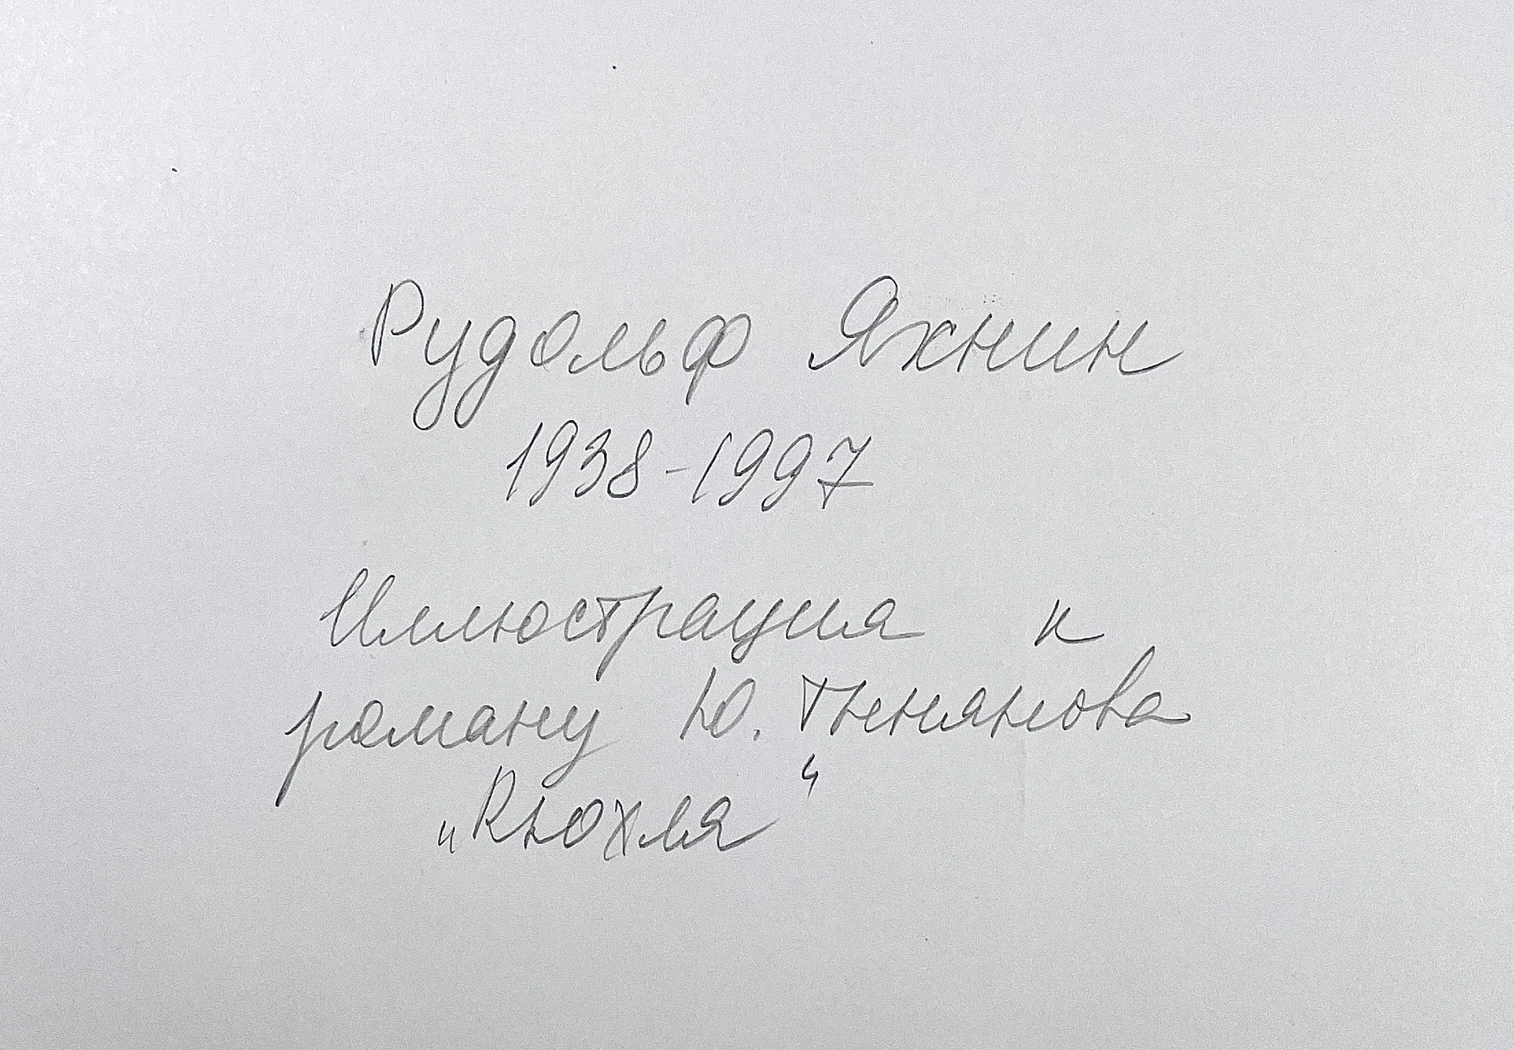 Рудольф Яхнин
1938-1997
Иллюстрация к
роману Ю. Тынянова
„Кюхля“